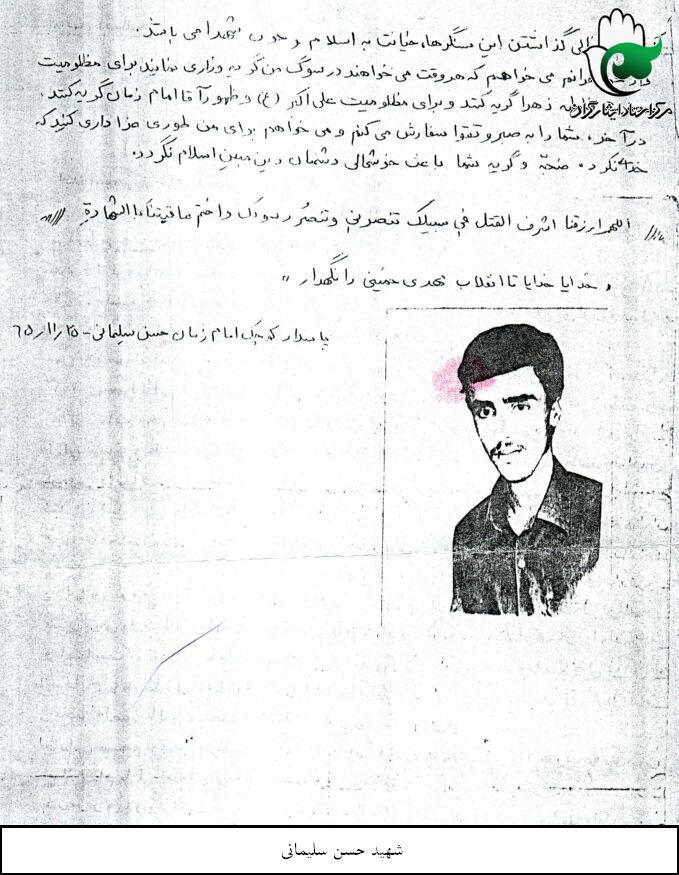 خالی گذاشتن این سنگرها، خیانت به اسلام و خون شهدا می باشد.
می خواهم که هر وقت می خواهند در سوگ من گریه وزاری نمایند برای مظلومیت
زهرا گریه کنند و برای مظلومیت علی اکبر (ع) و ظهور آقا امام زمان گریه کنند.
در آخر، شما را به صبر و تقوا سفارش می کنم و می خواهم برای من طوری عزاداری کنید که
خدا نکرده ضجّه و گریه شما باعث خوشحالی دشمنان دین مبین اسلام نگردد.
اللهم ارزقنا اشرف القتل في سبيلك تنصر به و تنصر رسولك واختم عاقبتنا بالشهادة
« خدایا خدایا تا انقلاب مهدی خمینی را نگهدار »
پاسدار کوچک امام زمان حسن سلیمانی - ۲۵/۱۱/۶۵
مرکز اسناد ایثارگران
شهید حسن سلیمانی